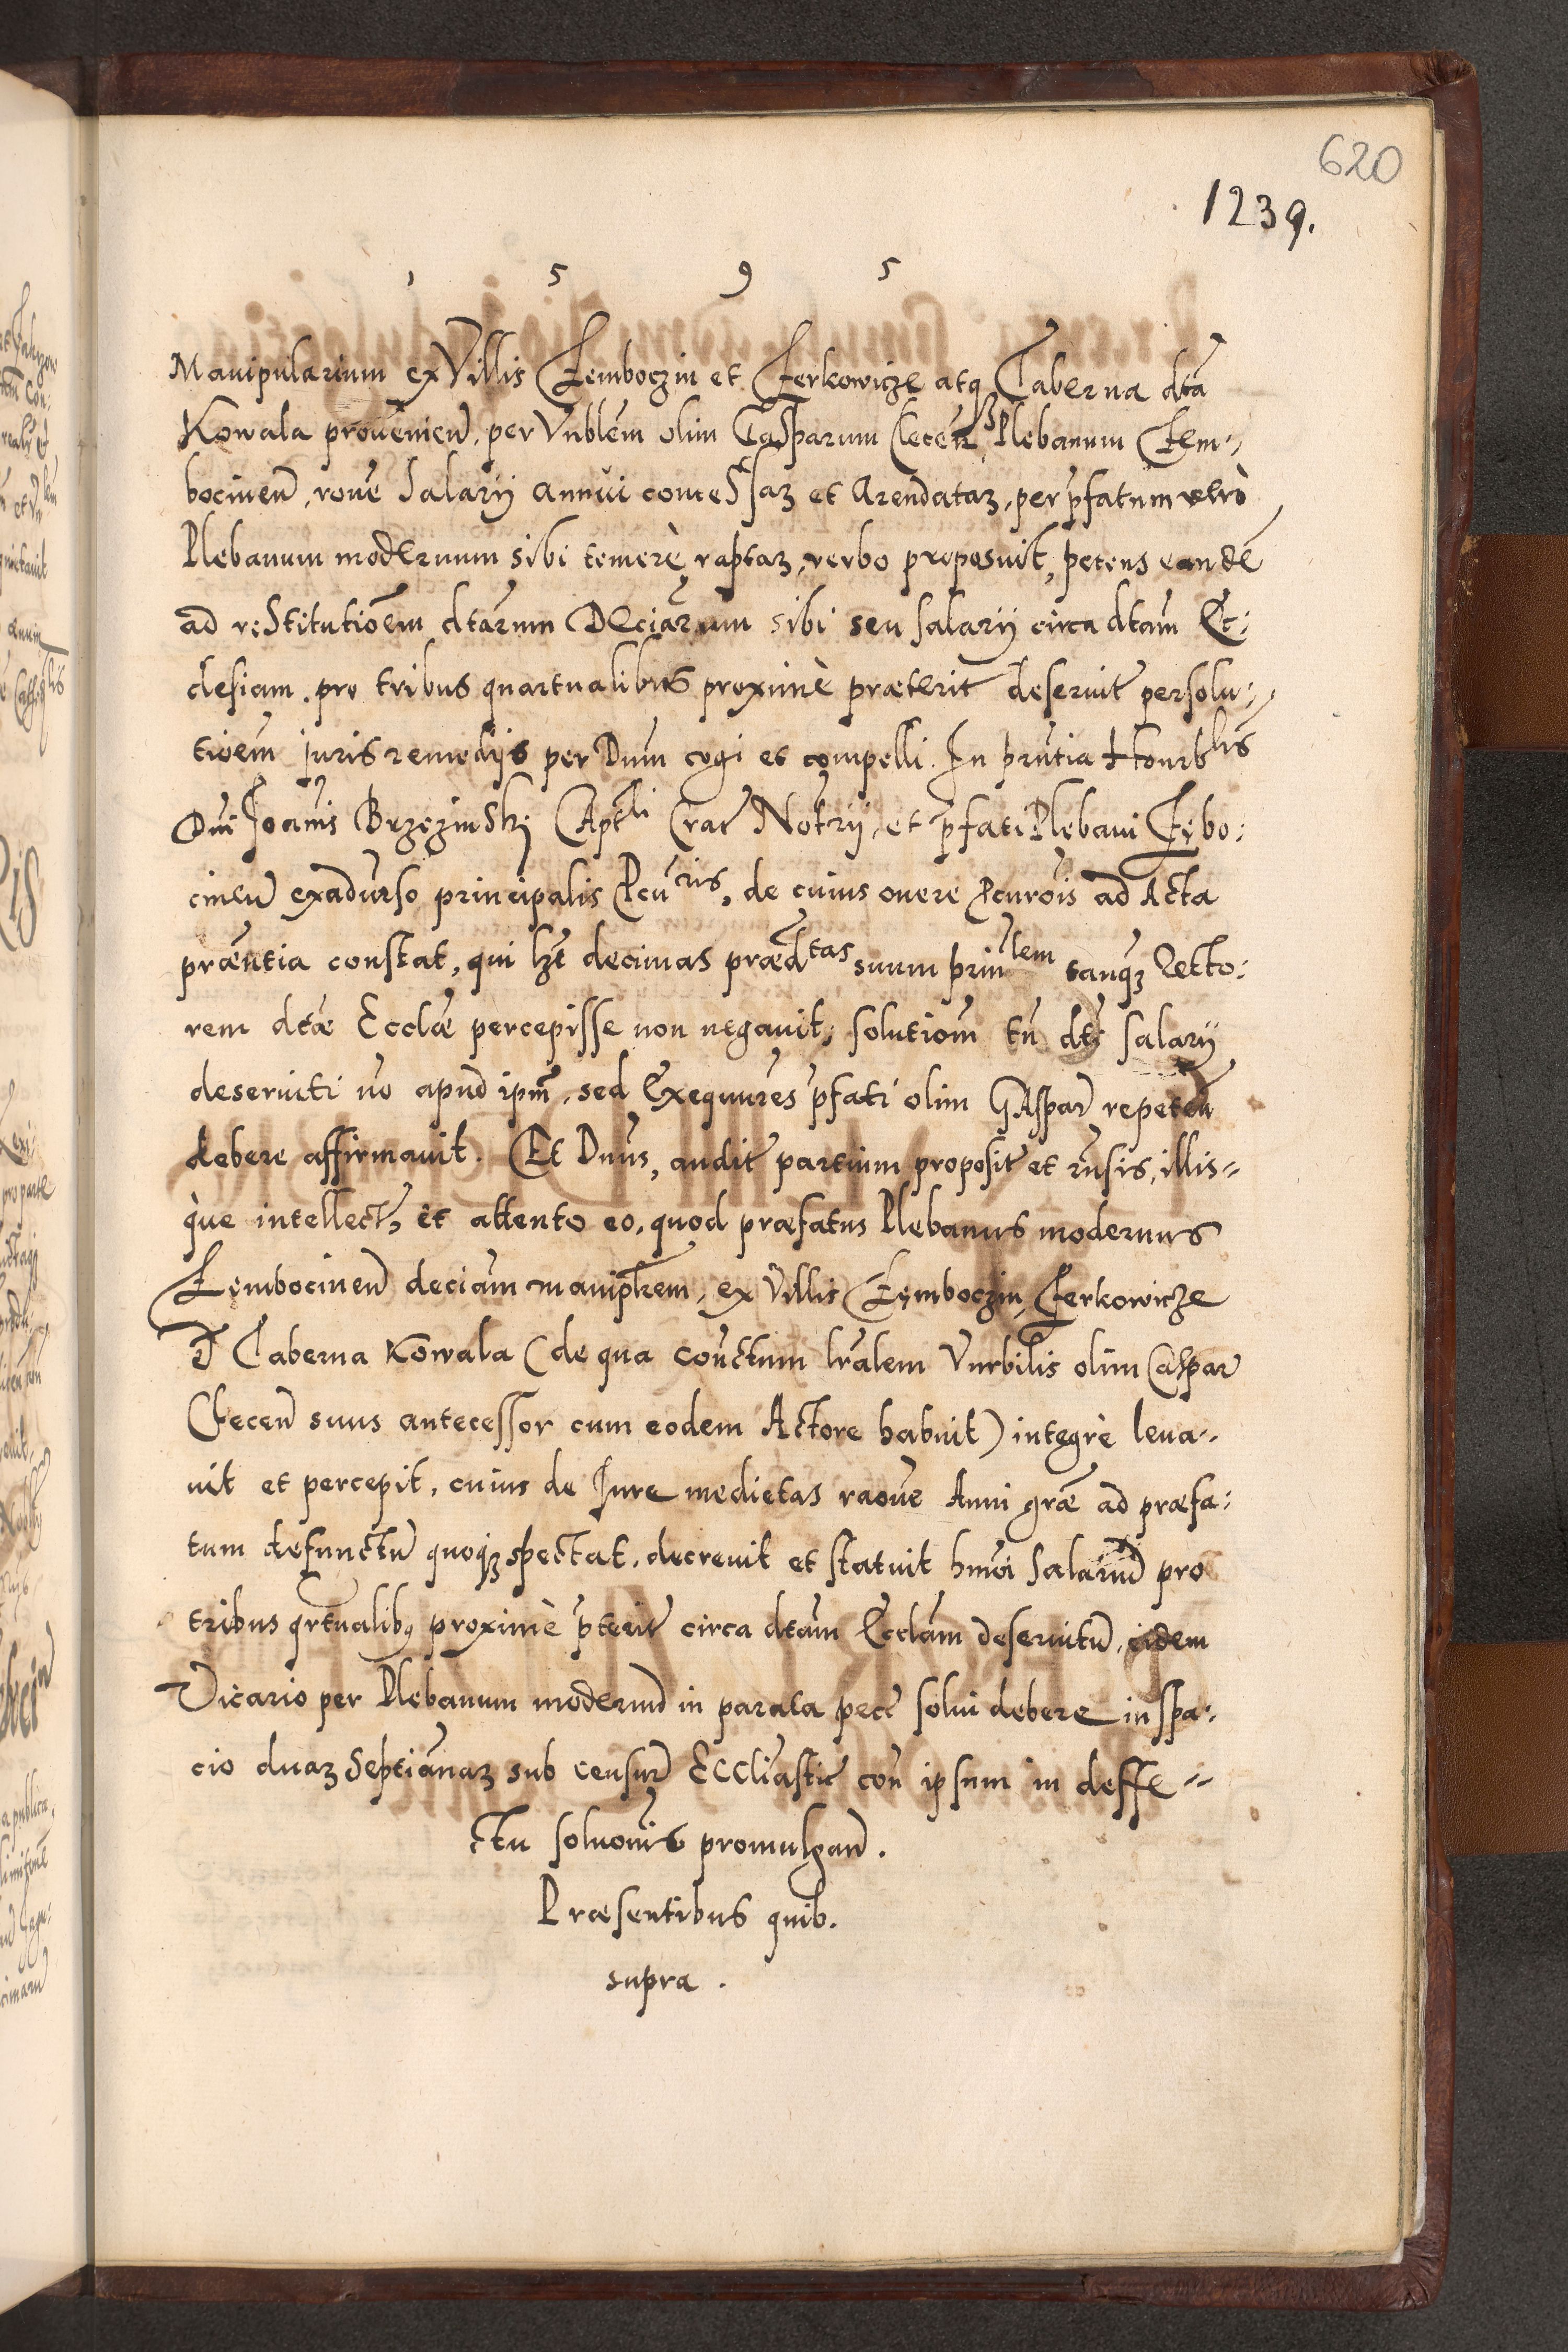 620
1239.
1 5 9 5
Manipularium ex Villis Zemboczin et Zerkowicze atq3 Taberna dta
Kowala provenien. per Vnblem olim Casparum Clecen Plebanum Zem-
bocinen, rone Salarij annui concessar et Arendatar, per pfatum vero
Plebanum modernum sibi temere raptar, verbo proposuit, petens eande
ad restitutioem dtarum Deciarum sibi seu salarij circa dtam Ec:
clesiam. pro tribus quartualibus proxime praeterit deservit persolu:
tioem juris remedijs per Dum cogi et compelli. In pntia Honrblis
Dni Joanis Brzezinskj Caplli Crac Notrij, et pfati Plebani Zębo:
cinen ex adverso principalis Pcuris, de cuius onere Pcurois ad Acta
praentia constat, qui lzt decimas praedtas suum prinlem tanq3 Recto:
rem dtae Ecclae percepisse non negavit, solutiom tn dti salarij
deserviti no apud ipm, sed Exequures pfati olim Gaspar repeten
debere affirmavit. Et Dnus, audit partium proposit et rnsis, illis-
que intellect, et attento eo, quod praefatus Plebanus modernus
Zembocinen deciam maniplrem, ex Villis Zęmboczin, Zerkowicze
et Taberna Kowala (de qua conctum lralem Vnrbilis olim Caspar
Clecen suus antecessor cum eodem Actore habuit) integre leva-
vit et percepit, cuius de Jure medietas raone Anni grae ad praefa:
tum defunctu quoq3 spectat, decrevit et statuit hmoi Salariu pro
tribus qrtualib9 proxime pterit circa dtam Ecclam deservitu, eidem
Vicario per Plebanum modernu in parata pec solui debere in spa:
cio duar Septianar sub censur Eccliastic con ipsum in deffe-
ctu soluonis promulgan.
Praesentibus quib.
supra.